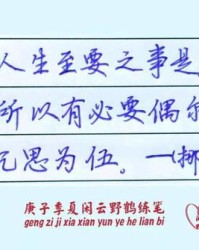 人生至要之事是
所以有必要偶尔
沉思为伍。一(挪
庚子季夏闲云野鹤练笔
geng zi ji xia xian yun ye he lian bi